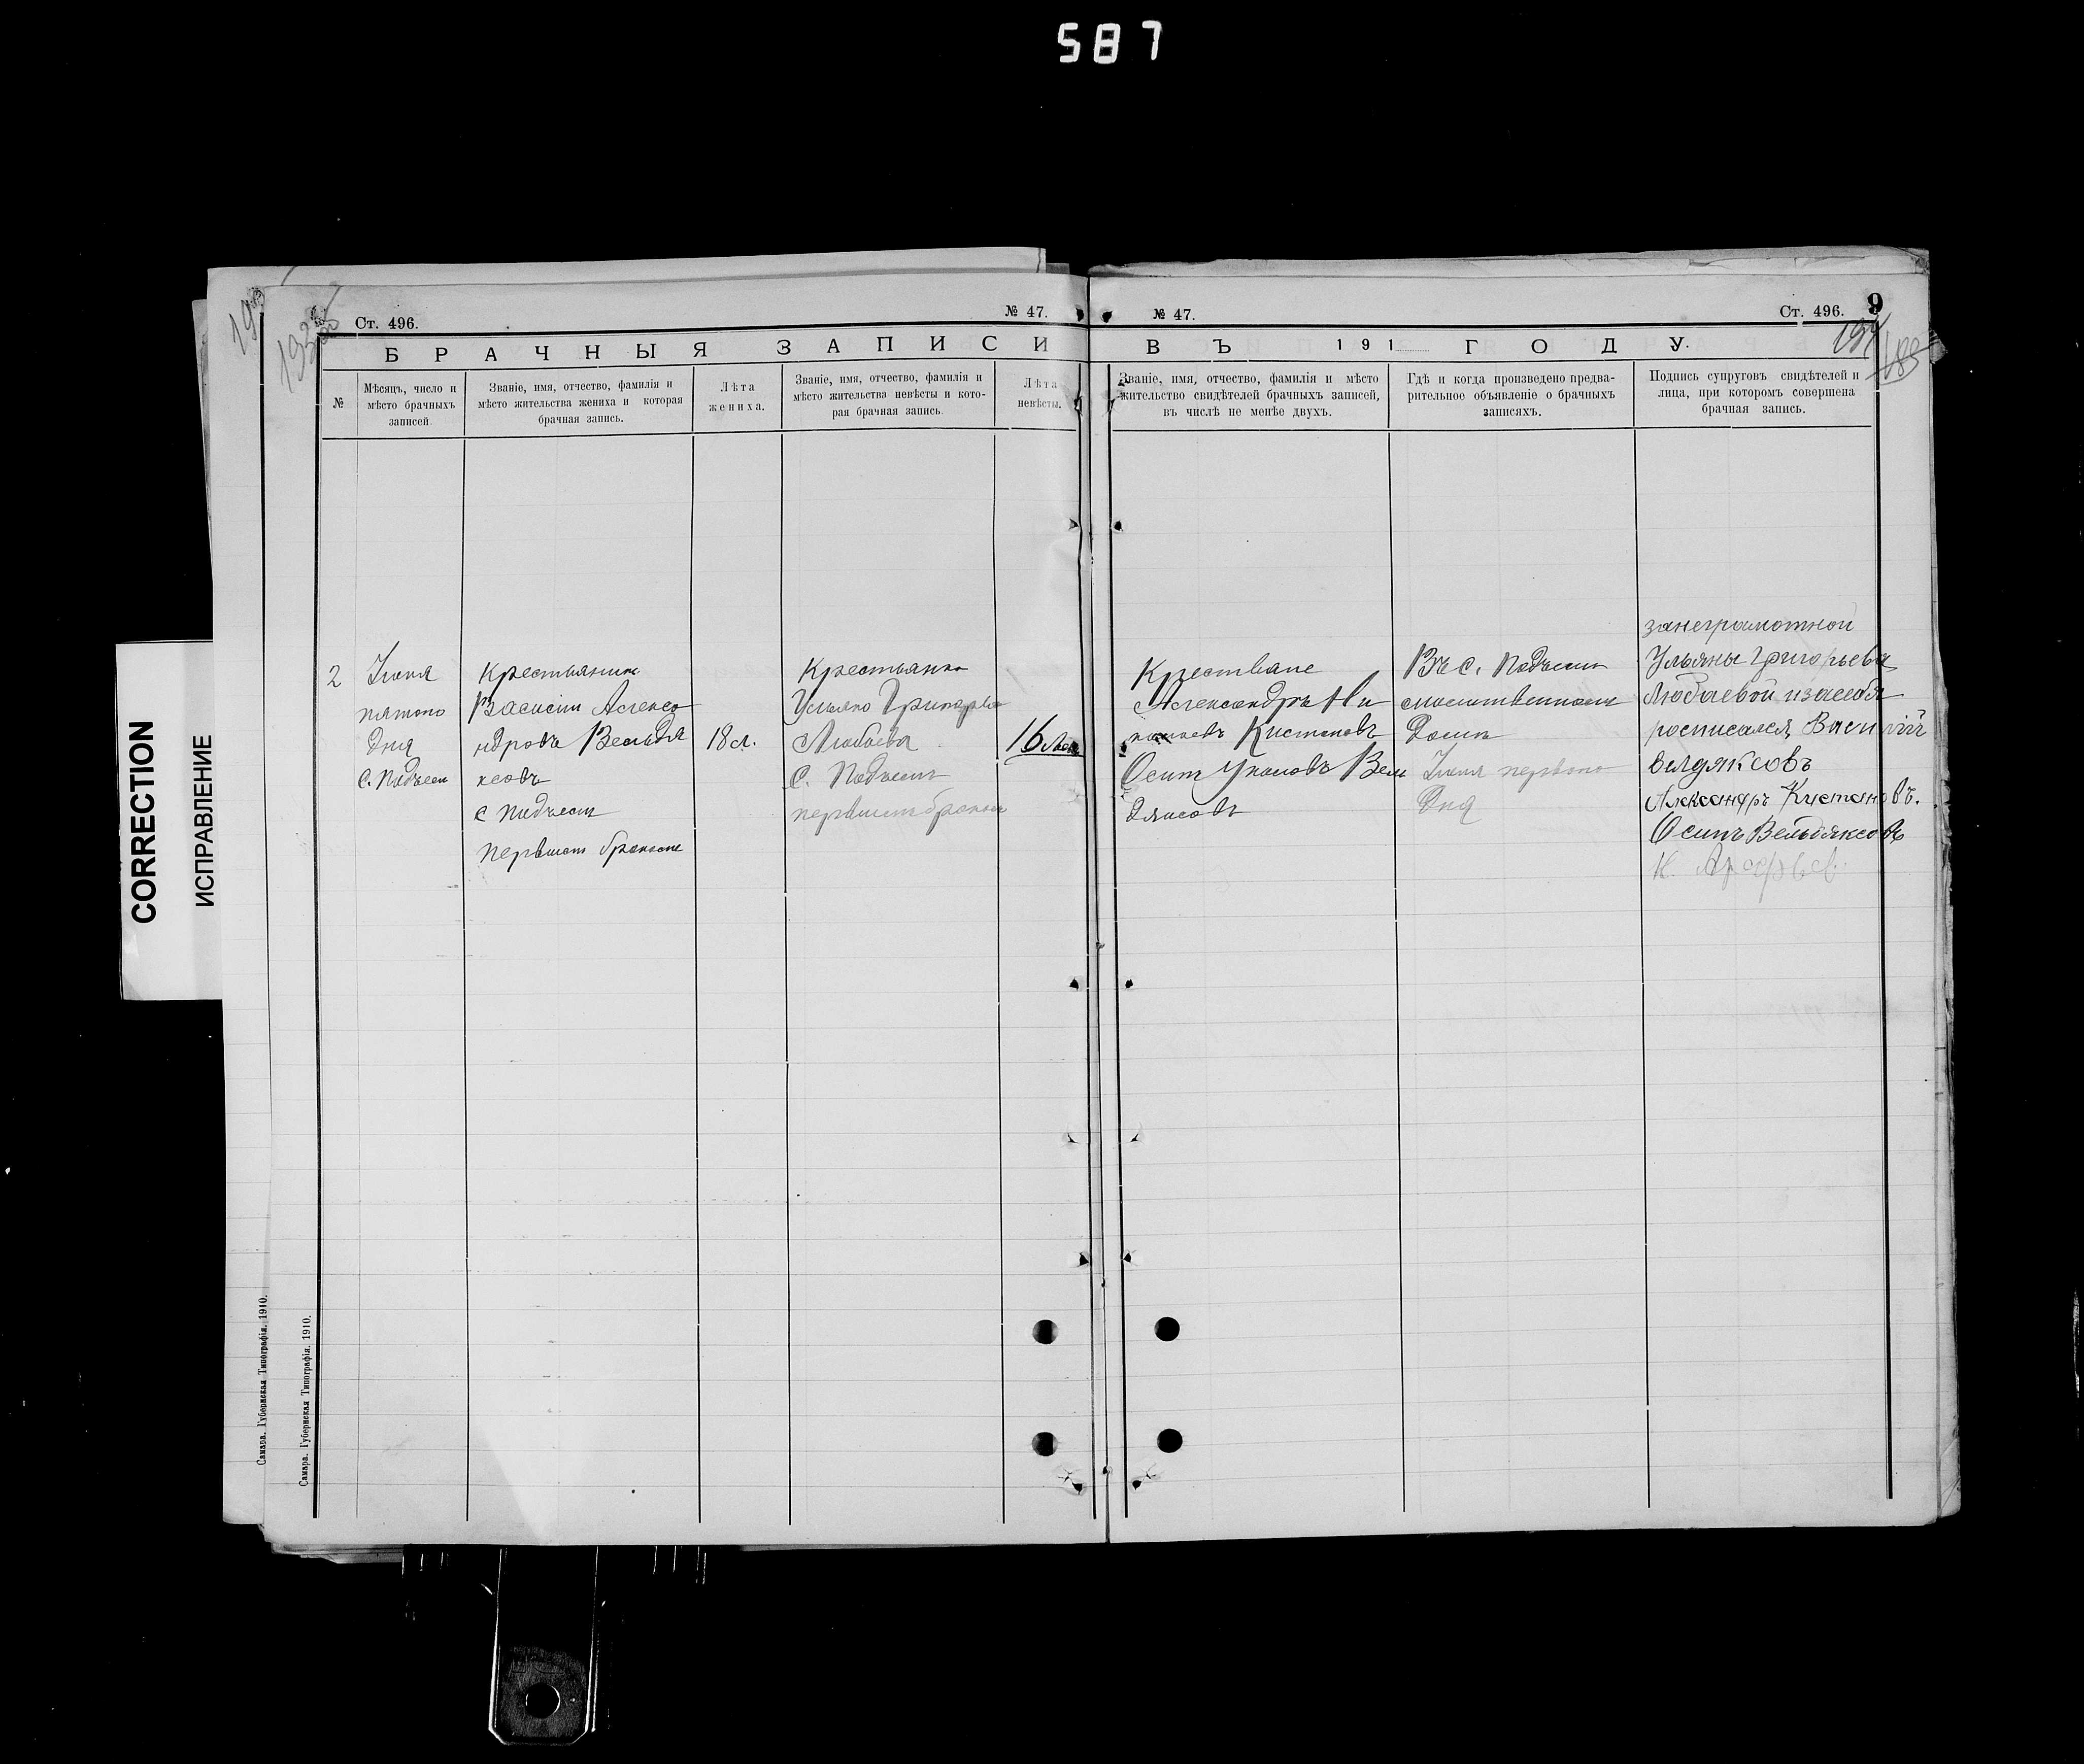 587
CORRECTION
ИСПРАВЛЕНИЕ
Ст. 496.
№ 47.
БРАЧНЫЯ ЗАПИСИ
№
Мѣсяцъ, число и
мѣсто брачныхъ
записей
Званіе, имя, отчество, фамилія и
мѣсто жительства жениха и которая
брачная запись.
Лѣта
жениха.
Званіе, имя, отчество, фамилія и
мѣсто жительства невѣсты и кото-
рая брачная запись.
Лѣта
невѣсты.
2
Іюня
пятого
дня
с. Подъем
Крестьянинъ
Василій Алекса
ндровъ Вельдя
ксовъ
с Подъем
первымъ бракомъ
18 л.
Крестьянка
Ульяна Григорьева
Любаева
С. Подъем
первымъ бракомъ
16 лет
Самара. Губернская Типографія. 1910.
Самара. Губернская Типографія. 1910.
№ 47.
Ст. 496.
9
ВЪ 191 ГОДУ.
Званіе, имя, отчество, фамилія и мѣсто
жительство свидѣтелей брачныхъ записей,
въ числѣ не менѣе двухъ.
Гдѣ и когда произведено предва-
рительное объявленіе о брачныхъ
записяхъ.
Подпись супруговъ свидѣтелей и
лица, при которомъ совершена
брачная запись.
Крестьяне
Александръ Ни
Кистановъ
Осипъ Вель
дяксовъ
Въ с. Подъем
молитвенномъ
Доме
Іюня первого
дня
занеграмотной
Ульяны Григорьева
Любаевой изасебя
росписался Василій
Велдяксовъ
Александръ Кистановъ.
Осипъ Вельдяксовъ
К.